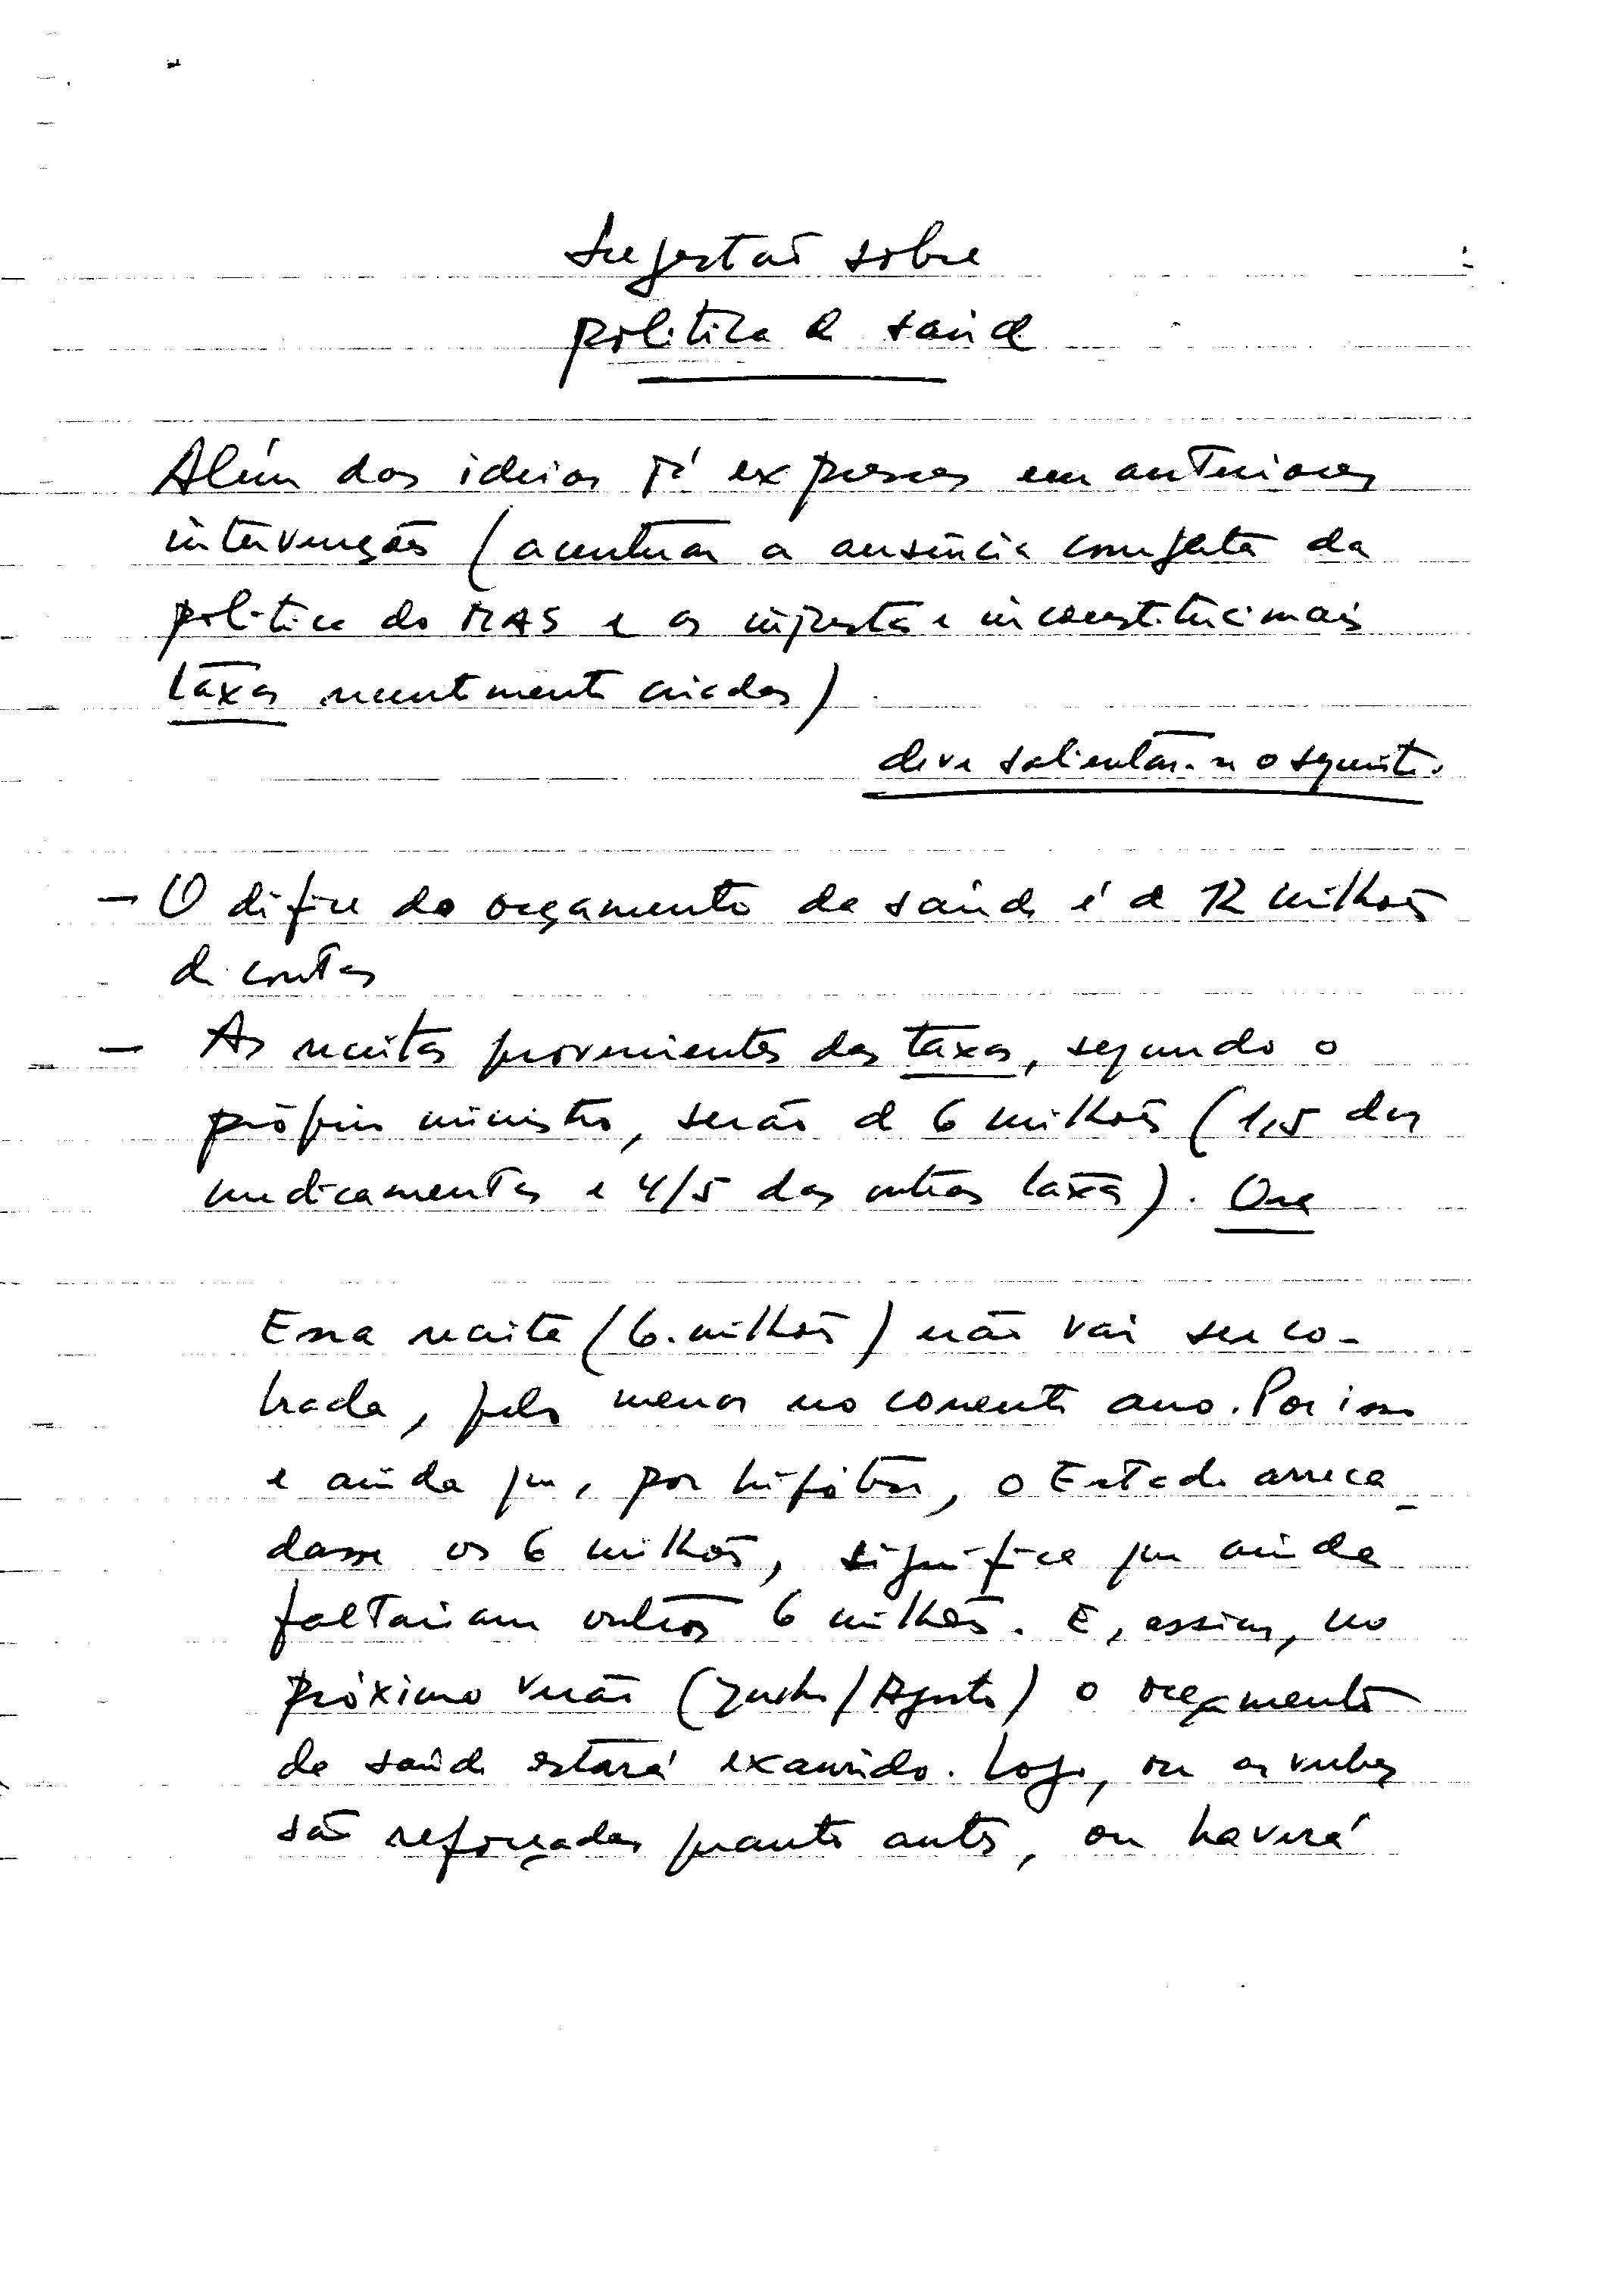 Sugestão sobre
política de saúde
Além das ideias já expressas em anteriores
intervenções (acentuar a ausência completa da
política do MAS e as injustas e inconstitucionais
taxas recentemente criadas)
deve salientar-se o seguinte.
- O défice do orçamento da saúde é de 12 milhões
de contos
- As receitas provenientes das taxas, segundo o
próprio ministro, serão de 6 milhões (1,5 dos
medicamentos e 4/5 das outras taxas). Ora
Essa receita (6 milhões) não vai ser co-
brada, pelo menos no corrente ano. Por isso
e ainda que, por hipótese, o Estado arreca-
dasse os 6 milhões, significa que ainda
faltariam outros 6 milhões. E, assim, no
próximo verão (Junho/Agosto) o orçamento
da saúde estará exaurido. Logo, ou as verbas
são reforçadas quanto antes, ou haverá